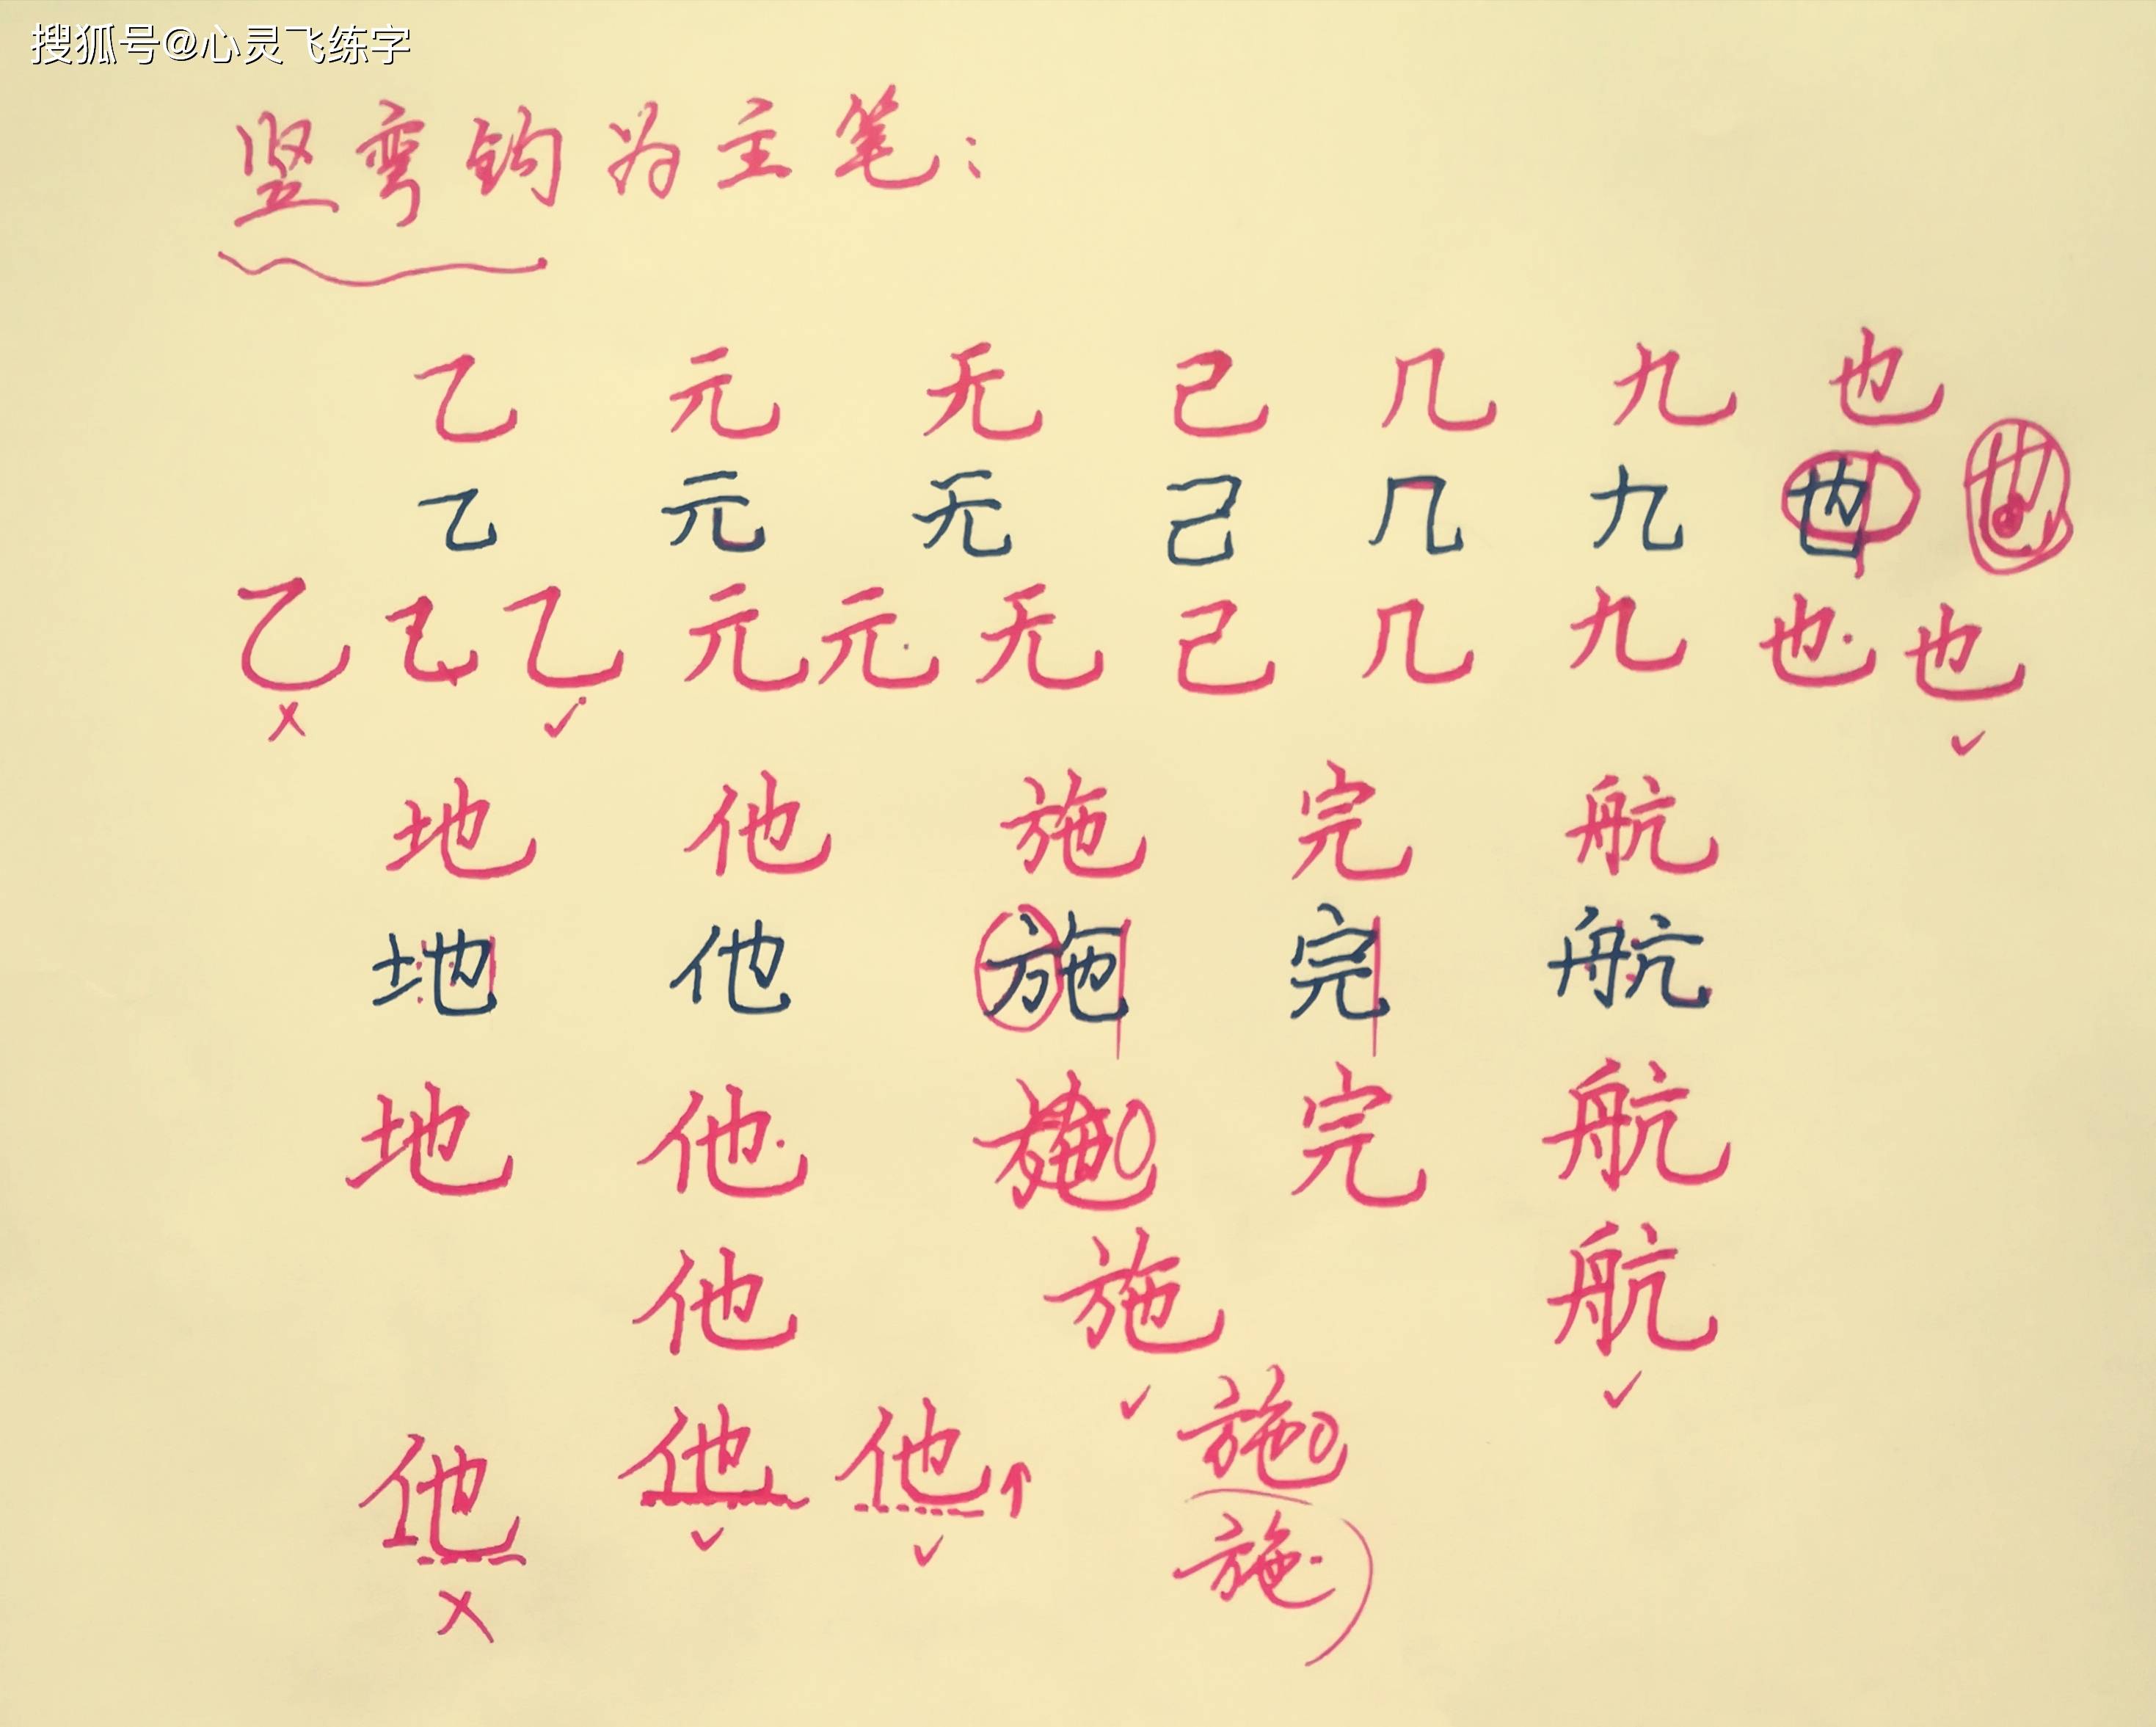 搜狐号@心灵飞练字
竖弯钩为主笔：
乙 元 无 己 几 九 也
乙 元 无 己 几 九 也 也
乙 乙 乙 元 元 无 己 几 九 也 也
地 他 施 完 航
地 他 施 完 航
地 他 施 完 航
他 施 航
他 他 他 施
施